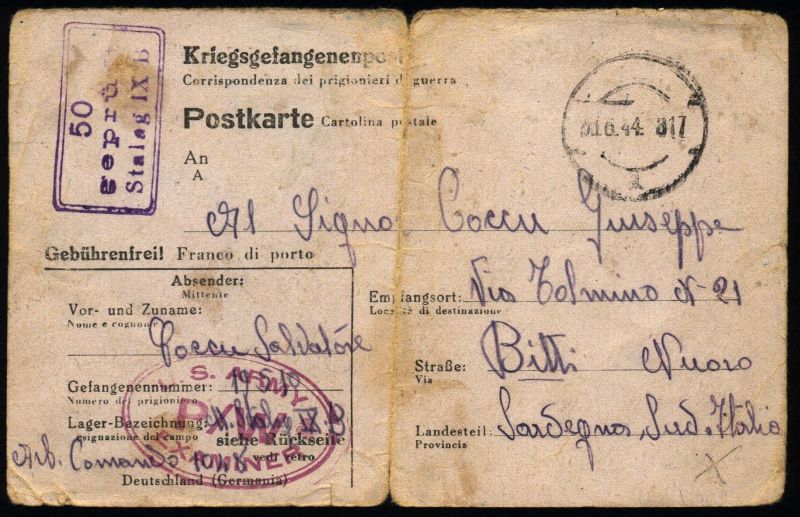 50
geprü
Stalag IX B
Kriegsgefangenenpost
Corrispondenza dei prigionieri di guerra
Postkarte Cartolina postale
30.6.44. 817
1
An
A
Al Signo Coccu Giuseppe
Gebührenfrei! Franco di porto
Absender:
Mittente
Vor- und Zuname:
Nome e cognome
Coccu Salvatore
Gefangenennummer:
Numero del prigioniero
Lager-Bezeichnung: M. Stalag IX B
esignazione del campo
siehe Rückseite
vedi retro
Arb. Comando
Deutschland (Germania)
U. S. ARMY
P.W.
EXAMINER
Empfangsort: Via Tolmino N 21
Località di destinazione
Straße: Bitti Nuoro
Via
Landesteil: Sardegna Sud. Italia
Provincia
X